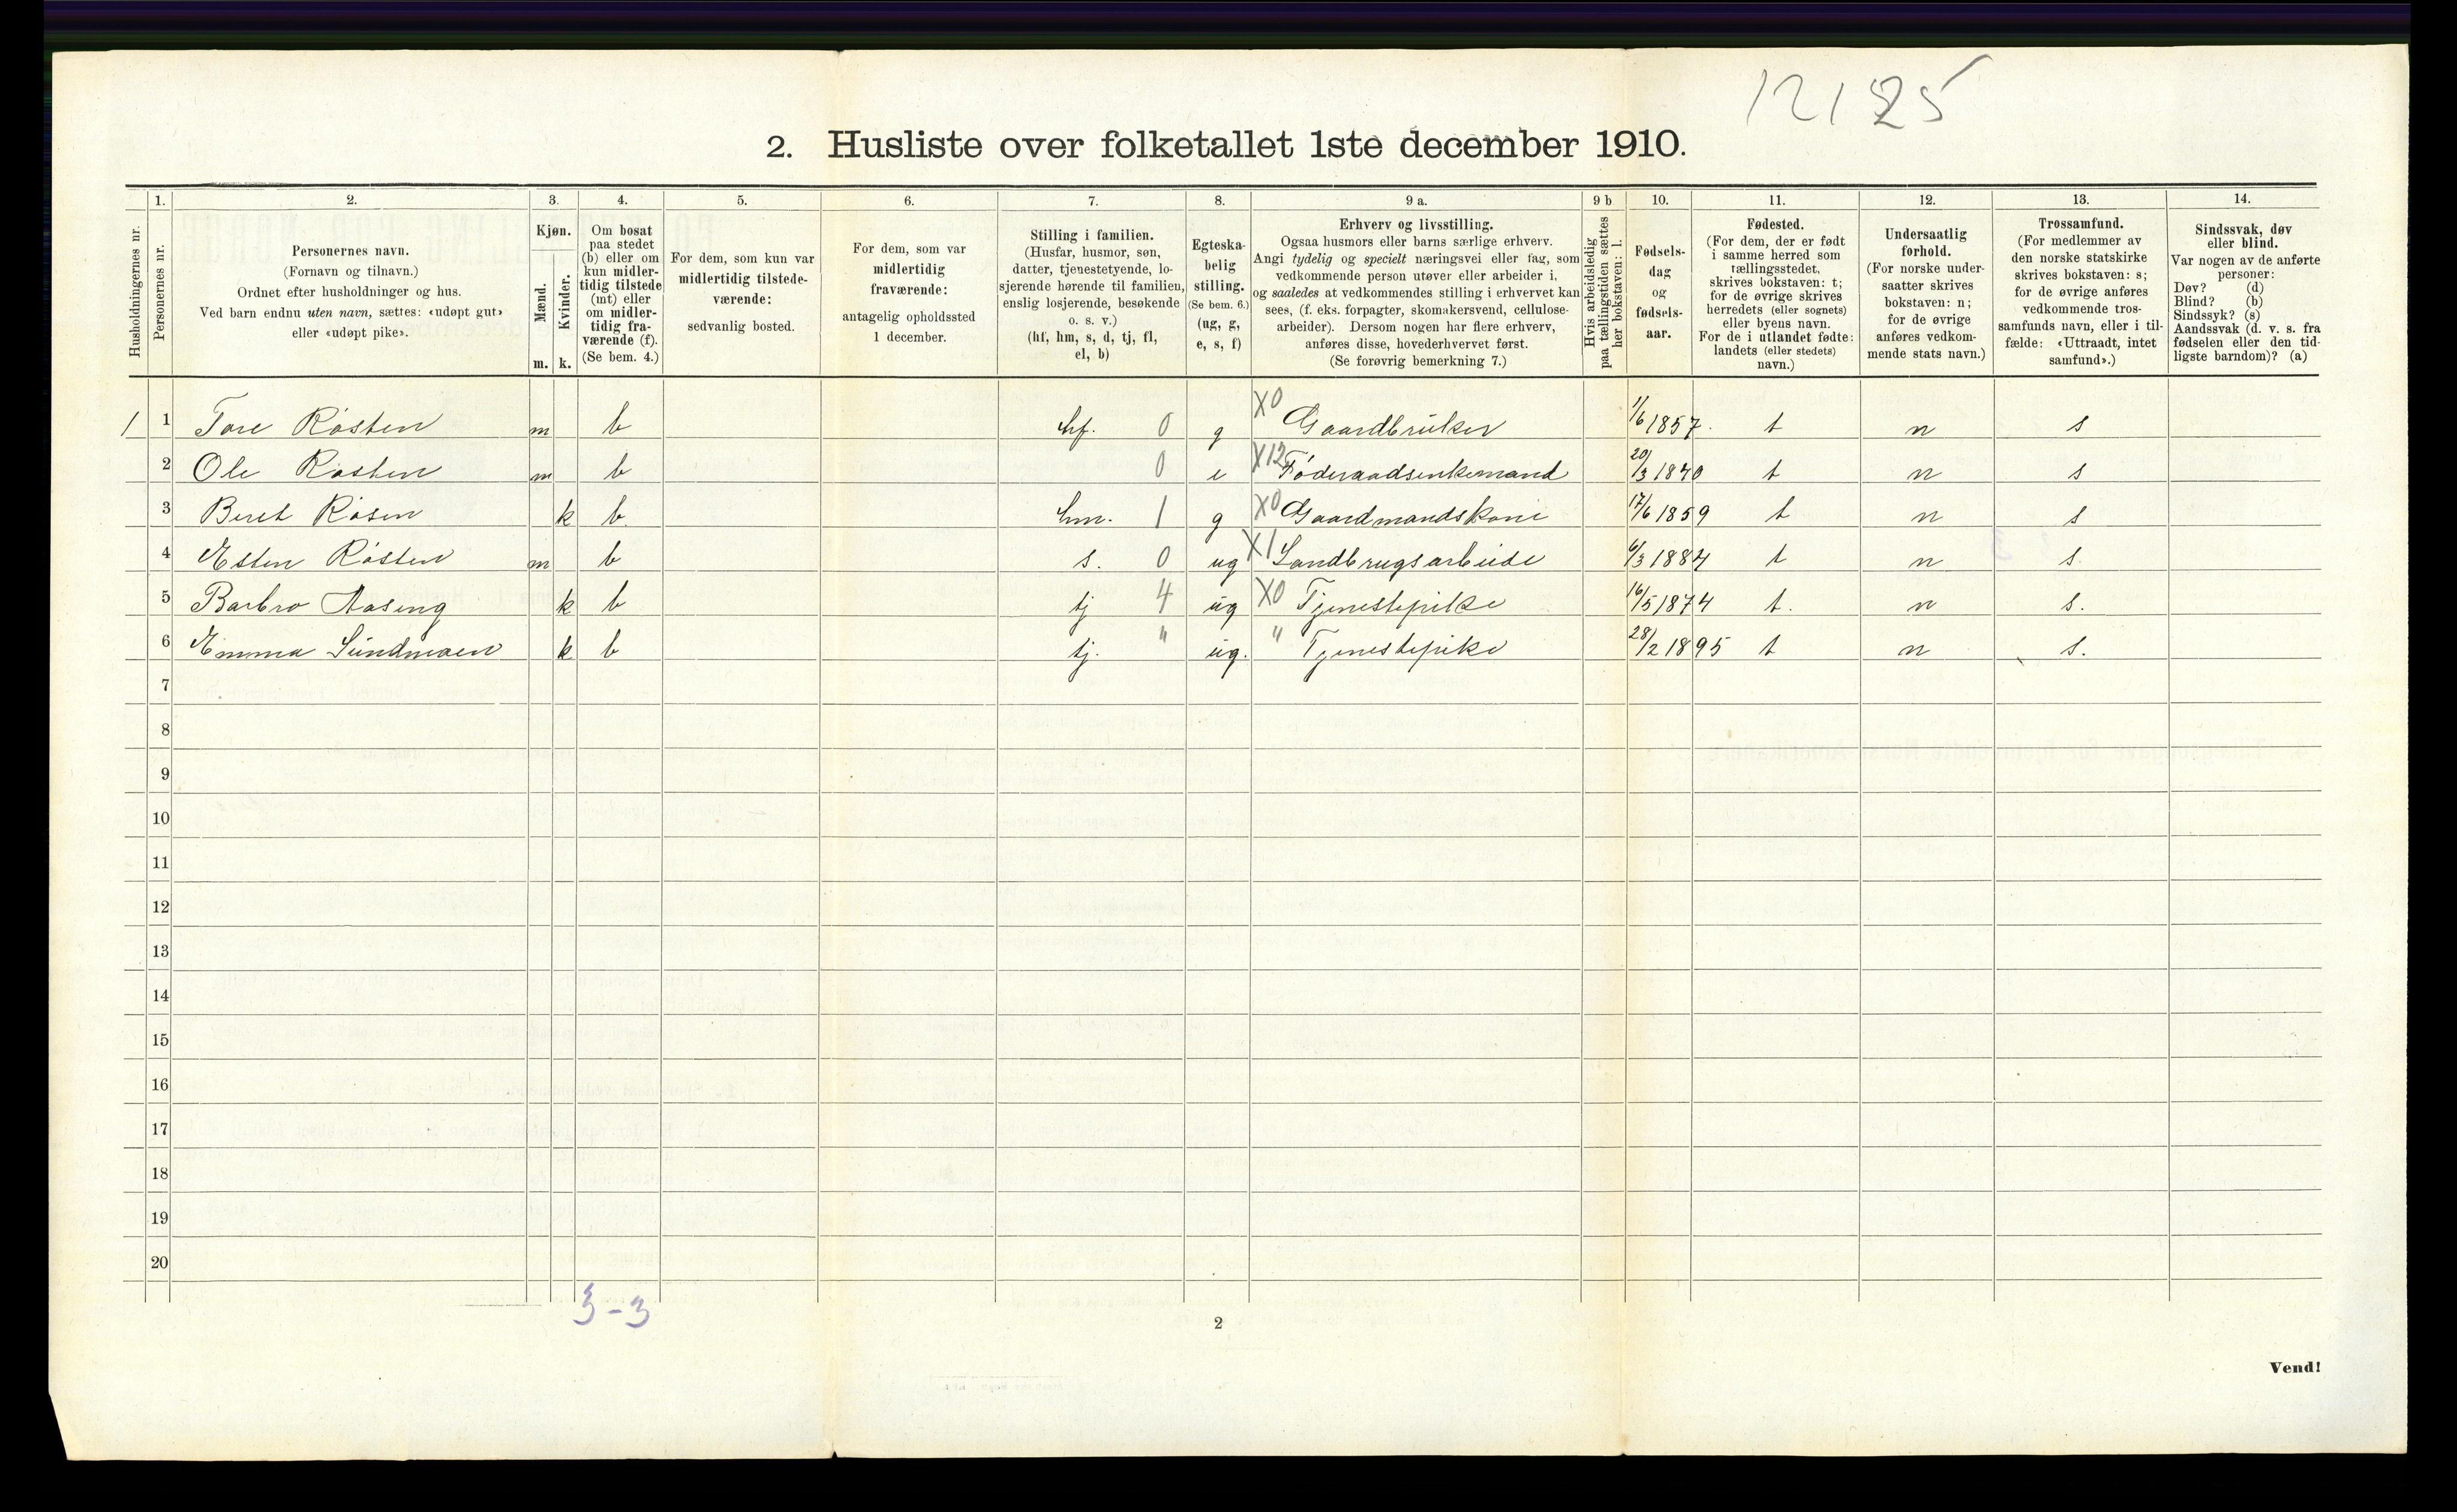 12125
2. Husliste over folketallet 1ste december 1910.
Husholdningernes nr.
1.
Personernes nr.
2.
Personernes navn.
(Fornavn og tilnavn.)
Ordnet efter husholdninger og hus.
Ved barn endnu uten navn, sættes: «udøpt gut»
eller «udøpt pike».
3.
Kjøn.
Mænd.
Kvinder.
m. k.
4.
Om bosat
paa stedet
(b) eller om
kun midler-
tidig tilstede
(mt) eller
om midler-
tidig fra-
værende (f).
(Se bem. 4.)
5.
For dem, som kun var
midlertidig tilstede-
værende:
sedvanlig bosted.
6.
For dem, som var
midlertidig
fraværende:
antagelig opholdssted
1 december.
7.
Stilling i familien.
(Husfar, husmor, søn,
datter, tjenestetyende, lo-
sjerende hørende til familien,
enslig losjerende, besøkende
o. s. v.)
(hf, hm, s, d, tj, fl,
el, b)
8.
Egteska-
belig
stilling.
(Se bem. 6.)
(ug, g,
e, s, f)
9 a.
Erhverv og livsstilling.
Ogsaa husmors eller barns særlige erhverv.
Angi tydelig og specielt næringsvei eller fag, som
vedkommende person utøver eller arbeider i,
og saaledes at vedkommendes stilling i erhvervet kan
sees, (f. eks. forpagter, skomakersvend, cellulose-
arbeider). Dersom nogen har flere erhverv,
anføres disse, hovederhvervet først.
(Se forøvrig bemerkning 7.)
9 b
Hvis arbeidsledig
paa tællingstiden sættes
her bokstaven: l.
10.
Fødsels-
dag
og
fødsels-
aar.
11.
Fødested.
(For dem, der er født
i samme herred som
tællingsstedet,
skrives bokstaven: t;
for de øvrige skrives
herredets (eller sognets)
eller byens navn.
For de i utlandet fødte:
landets (eller stedets)
navn.)
12.
Undersaatlig
forhold.
(For norske under-
saatter skrives
bokstaven: n;
for de øvrige
anføres vedkom-
mende stats navn.)
13.
Trossamfund.
(For medlemmer av
den norske statskirke
skrives bokstaven: s;
for de øvrige anføres
vedkommende tros-
samfunds navn, eller i til-
fælde: «Uttraadt, intet
samfund».)
14.
Sindssvak, døv
eller blind.
Var nogen av de anførte
personer:
Døv? (d)
Blind? (b)
Sindssyk? (s)
Aandssvak (d. v. s. fra
fødselen eller den tid-
ligste barndom)? (a)
1 1 Tore Røsten m b hf. 0 g X0 Gaardbruker 1/6 1857. t n s
2 Ole Røsten m b 0 e X12 Føderaadsenkemand 20/3 1840 t n s
3 Beret Røsen k b hm. 1 g X0 Gaardmandskone 17/6 1859 t n s
4 Esten Røsten m b s. 0 ug X1 Landbrugsarbeide 6/3 1884 t n s.
5 Barbro Aaseng k b tj 4 ug X0 Tjenestepike 16/5 1874 t. n s.
6 Emma Sundmoen k b tj. " ug. " Tjenestepike 28/2 1895 t n s.
7
8
9
10
11
12
13
14
15
16
17
18
19
20
3-3
2
Vend!